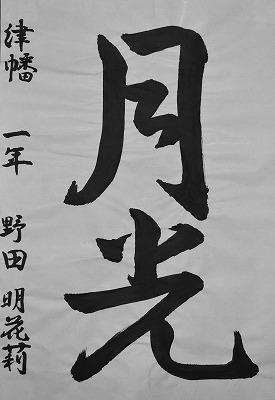 月光
津幡 一年 野田明花莉